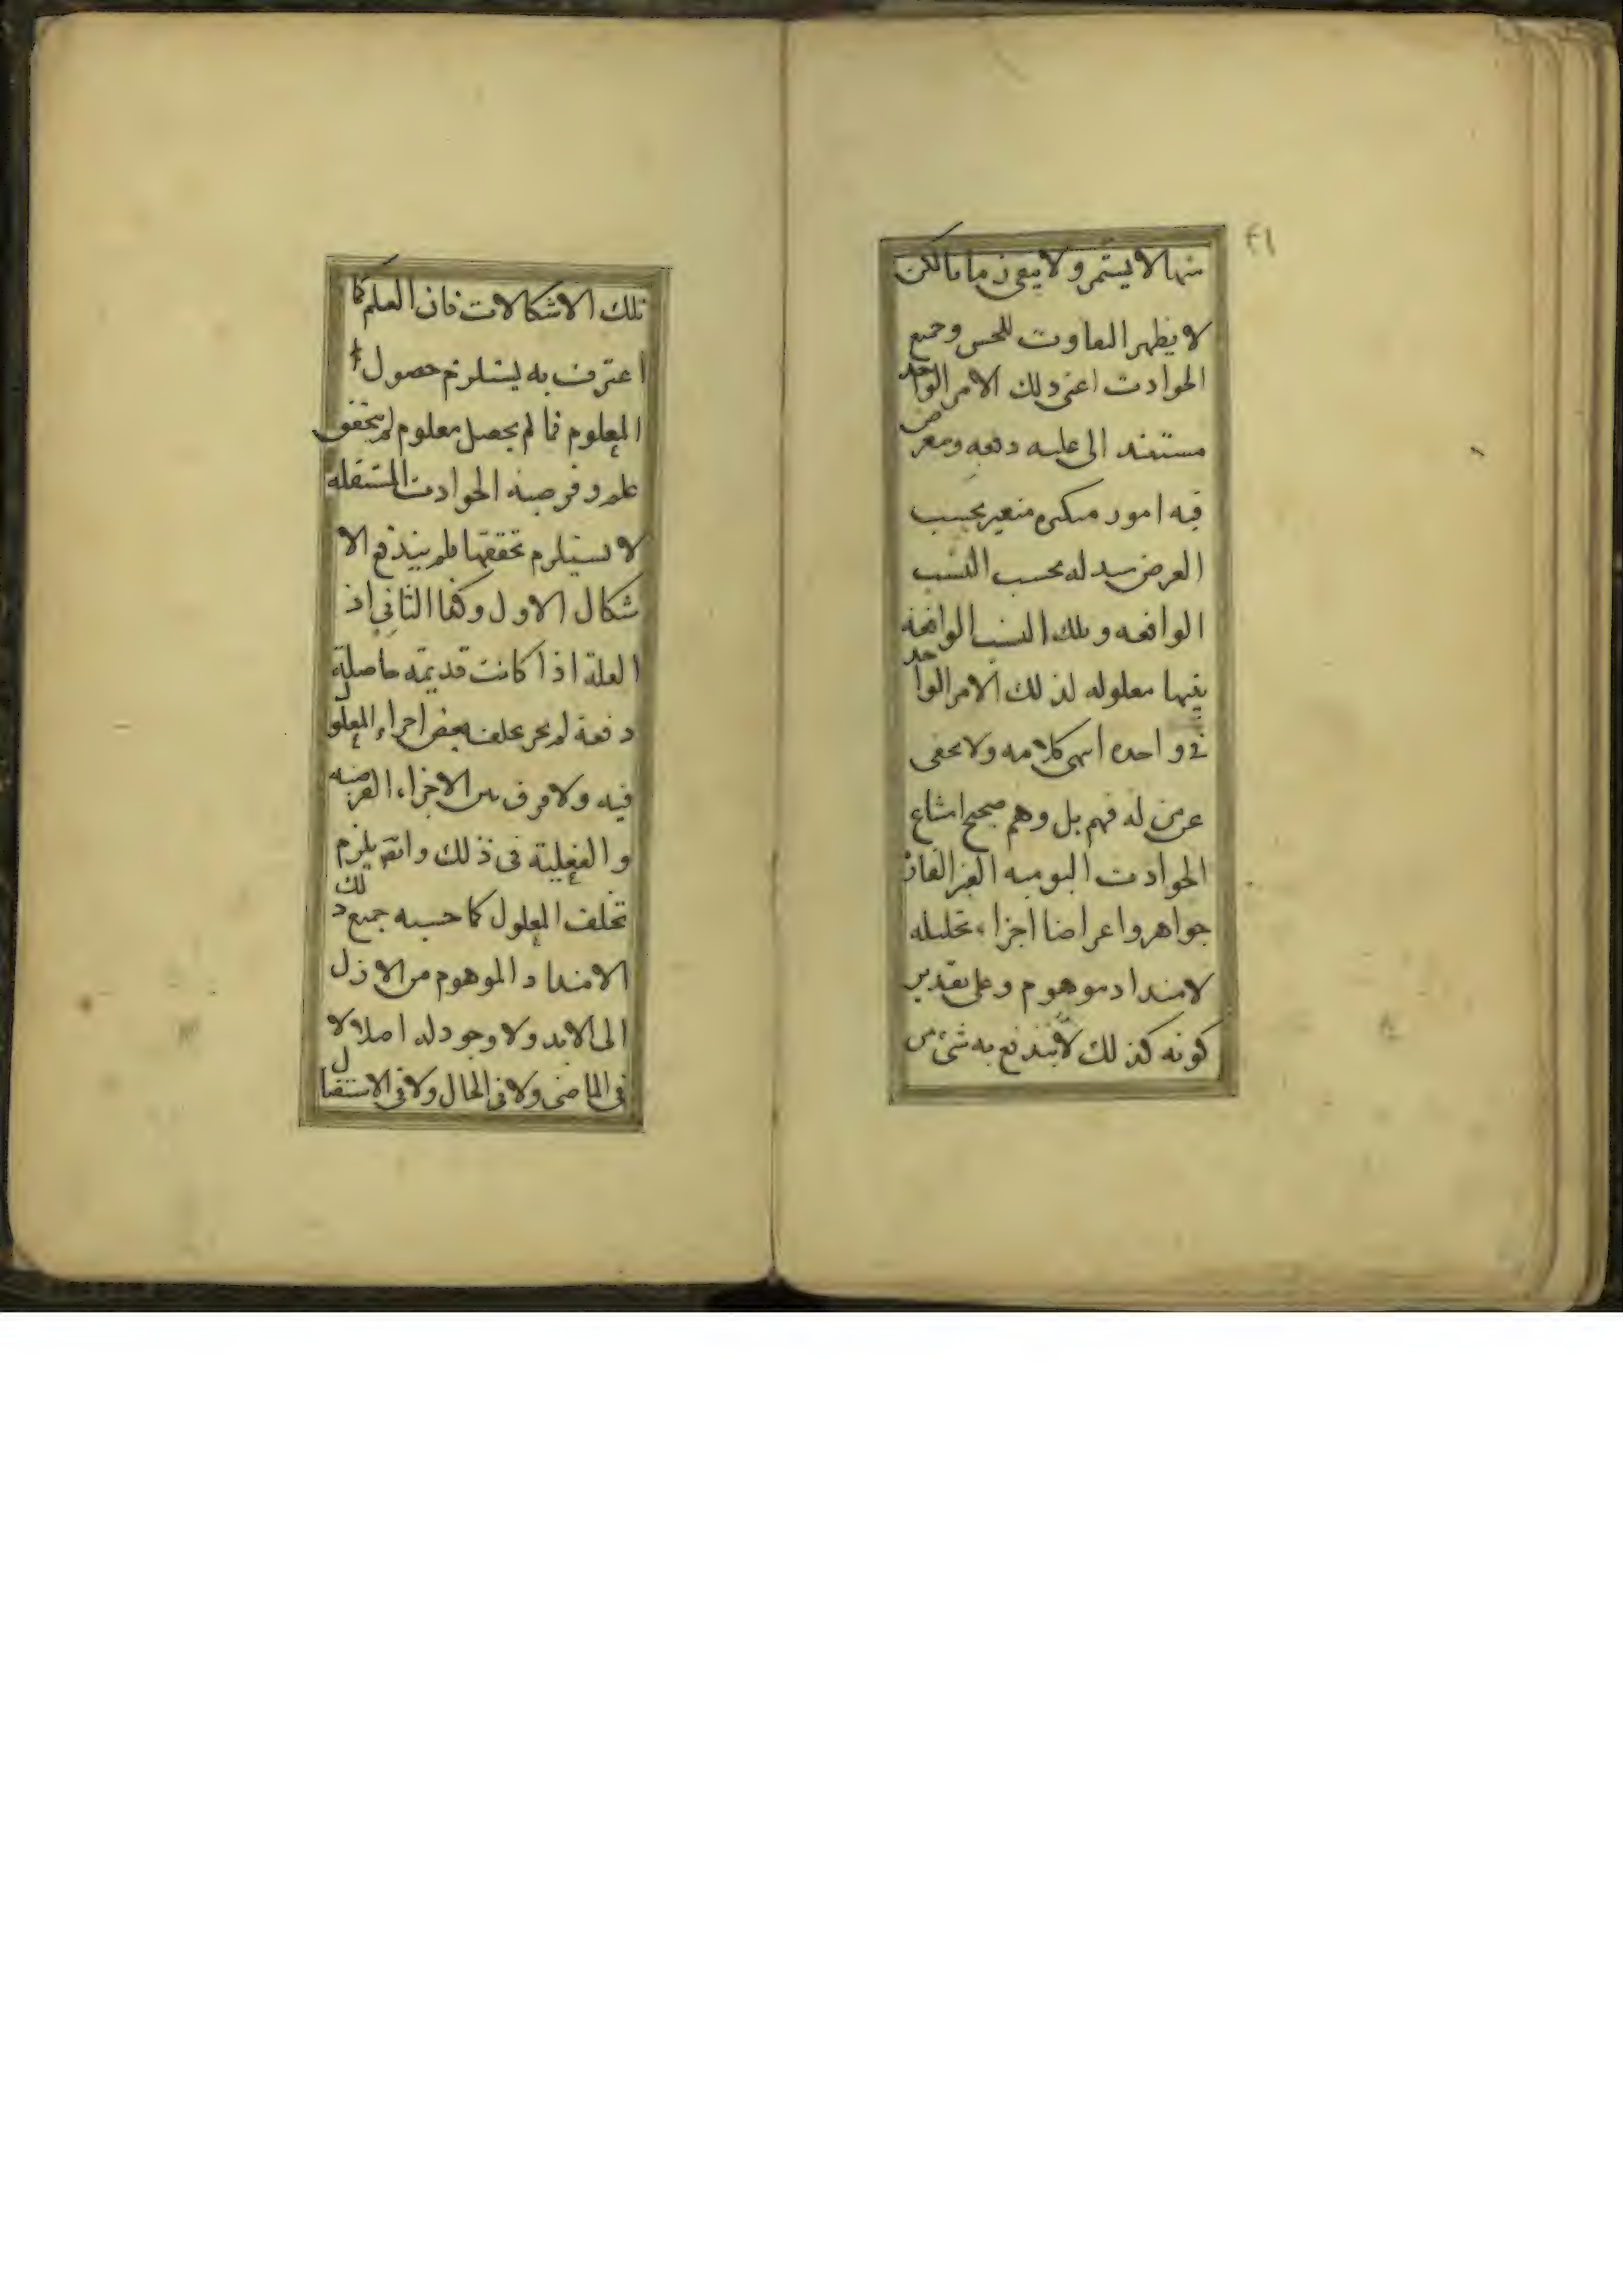 ٤١
منها لا يستمر ولا يبقى زمانا لكن
لا يظهر التفاوت للحس وجميع
الحوادث اعنى ذلك الامر الواحد
مستند الى علته دفعه ومعرض
فيه امور متكثره متغير بحسب
العرض متبدله بحسب النسب
الواقعه وتلك النسب الواقعة
بينها معلوله لذلك الامر الواحد
واحده انتهى كلامه ولا يخفى
على من له فهم بل وهم صحيح امتناع
الحوادث اليوميه الغير القارة
جواهر واعراضا اجزاء تحليله
لامتداد موهوم وعلى تقدير
كونه كذلك لا يندفع به شئ من
تلك الاشكالات فان العلم كما
اعترف به يستلزم حصول
المعلوم فما لم يحصل معلوم لم يتحقق
علم وفرضية الحوادث المستقله
لا يستلزم تحققها فلم يندفع الا
شكال الاول وكذا الثاني اذ
العلة اذا كانت قديمة حاصلة
دفعة لم يجز تخلف بعض اجزاء المعلول
فيه ولا فرق بين الاجزاء الفرضيه
والفعلية فى ذلك وانه يلزم
تخلف المعلول كما حسبه جميع ذلك
الامتداد الموهوم من الازل
الى الابد ولا وجود له اصلا لا
فى الماضى ولا فى الحال ولا فى الاستقبال